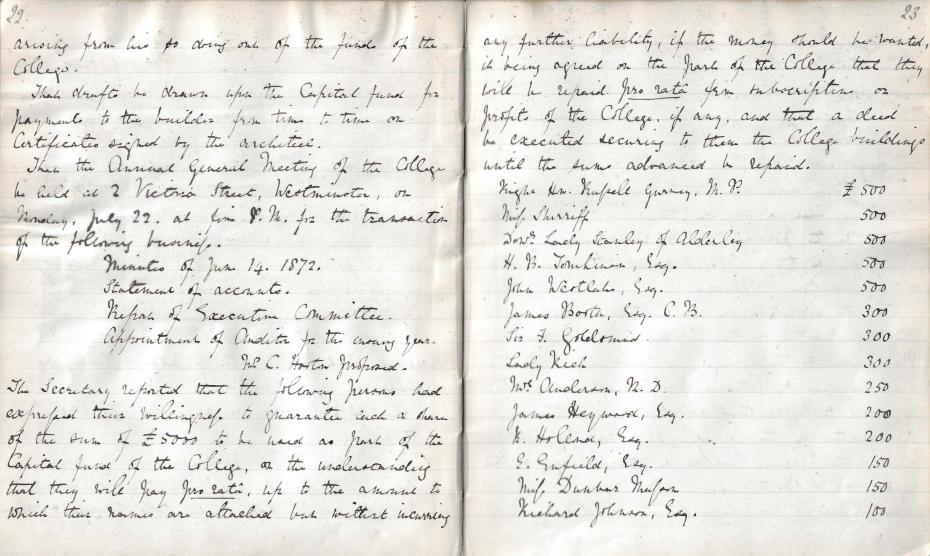 22
arising from his so doing out of the funds of the
College.
That drafts be drawn upon the Capital fund for
payments to the builder from time to time on
Certificates signed by the architect.
That the Annual General Meeting of the College
be held at 2 Victoria Street, Westminster, on
Monday, July 22. at four P.M. for the transaction
of the following business.
Minutes of June 14. 1872.
Statement of accounts.
Report of Executive Committee.
Appointment of Auditor for the ensuing year.
Mr. C. proposed.
The Secretary reported that the following persons had
expressed their willingness to guarantee such a share
of the sum of £5000 to be used as part of the
Capital fund of the College, on the understanding
that they will pay pro ratâ, up to the amount to
which their names are attached but without incurring
23
any further liability, if the money should be wanted,
it being agreed on the part of the College that they
will be repaid pro ratâ from subscriptions or
profits of the College, if any, and that a deed
be executed securing to them the College buildings
until the sums advanced be repaid.
Right Hn. Russell Gurney, M.P. £500
Miss Shirriff 500
Dowr. Lady Stanley of Alderley 500
H. R. Tomkinson, Esq. 500
John Westlake, Esq. 500
James Booth, Esq. C.B. 300
Sir F. Goldsmid. 300
Lady Rich 300
Mrs Anderson, M.D. 250
James Heywood, Esq. 200
Holland, Esq. 200
E. Enfield, Esq. 150
Miss Dunbar Masson 150
Richard Johnson, Esq. 100